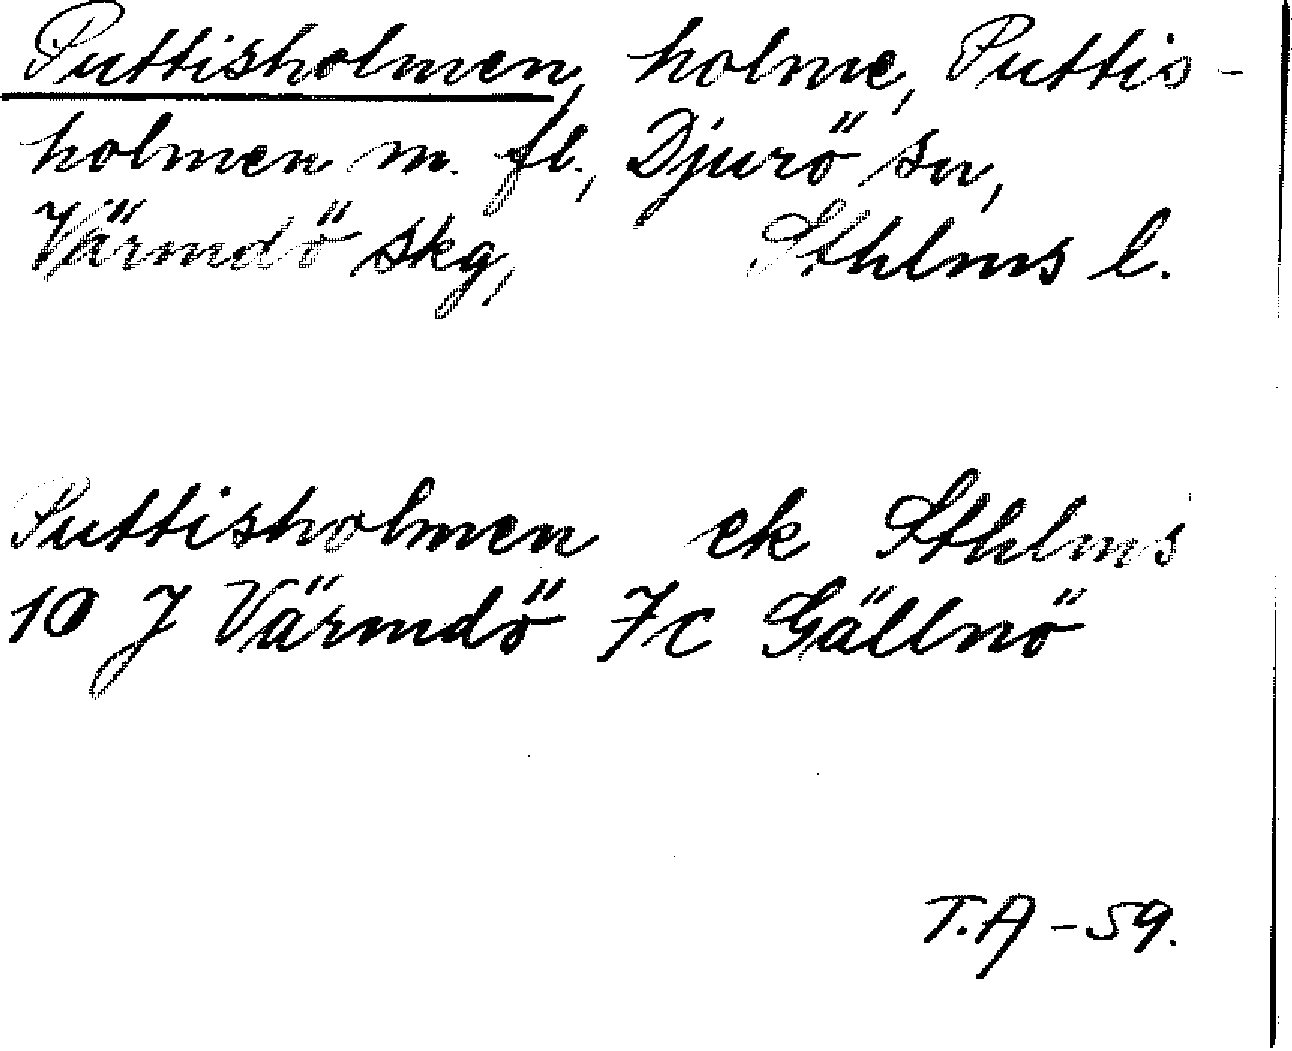 Puttisholmen, holme, Puttis-
holmen m. fl., Djurö sn,
Värmdö skg, Sthlms l.
Puttisholmen ek Sthlms
10 J Värmdö 7c Gällnö
T.A -59.